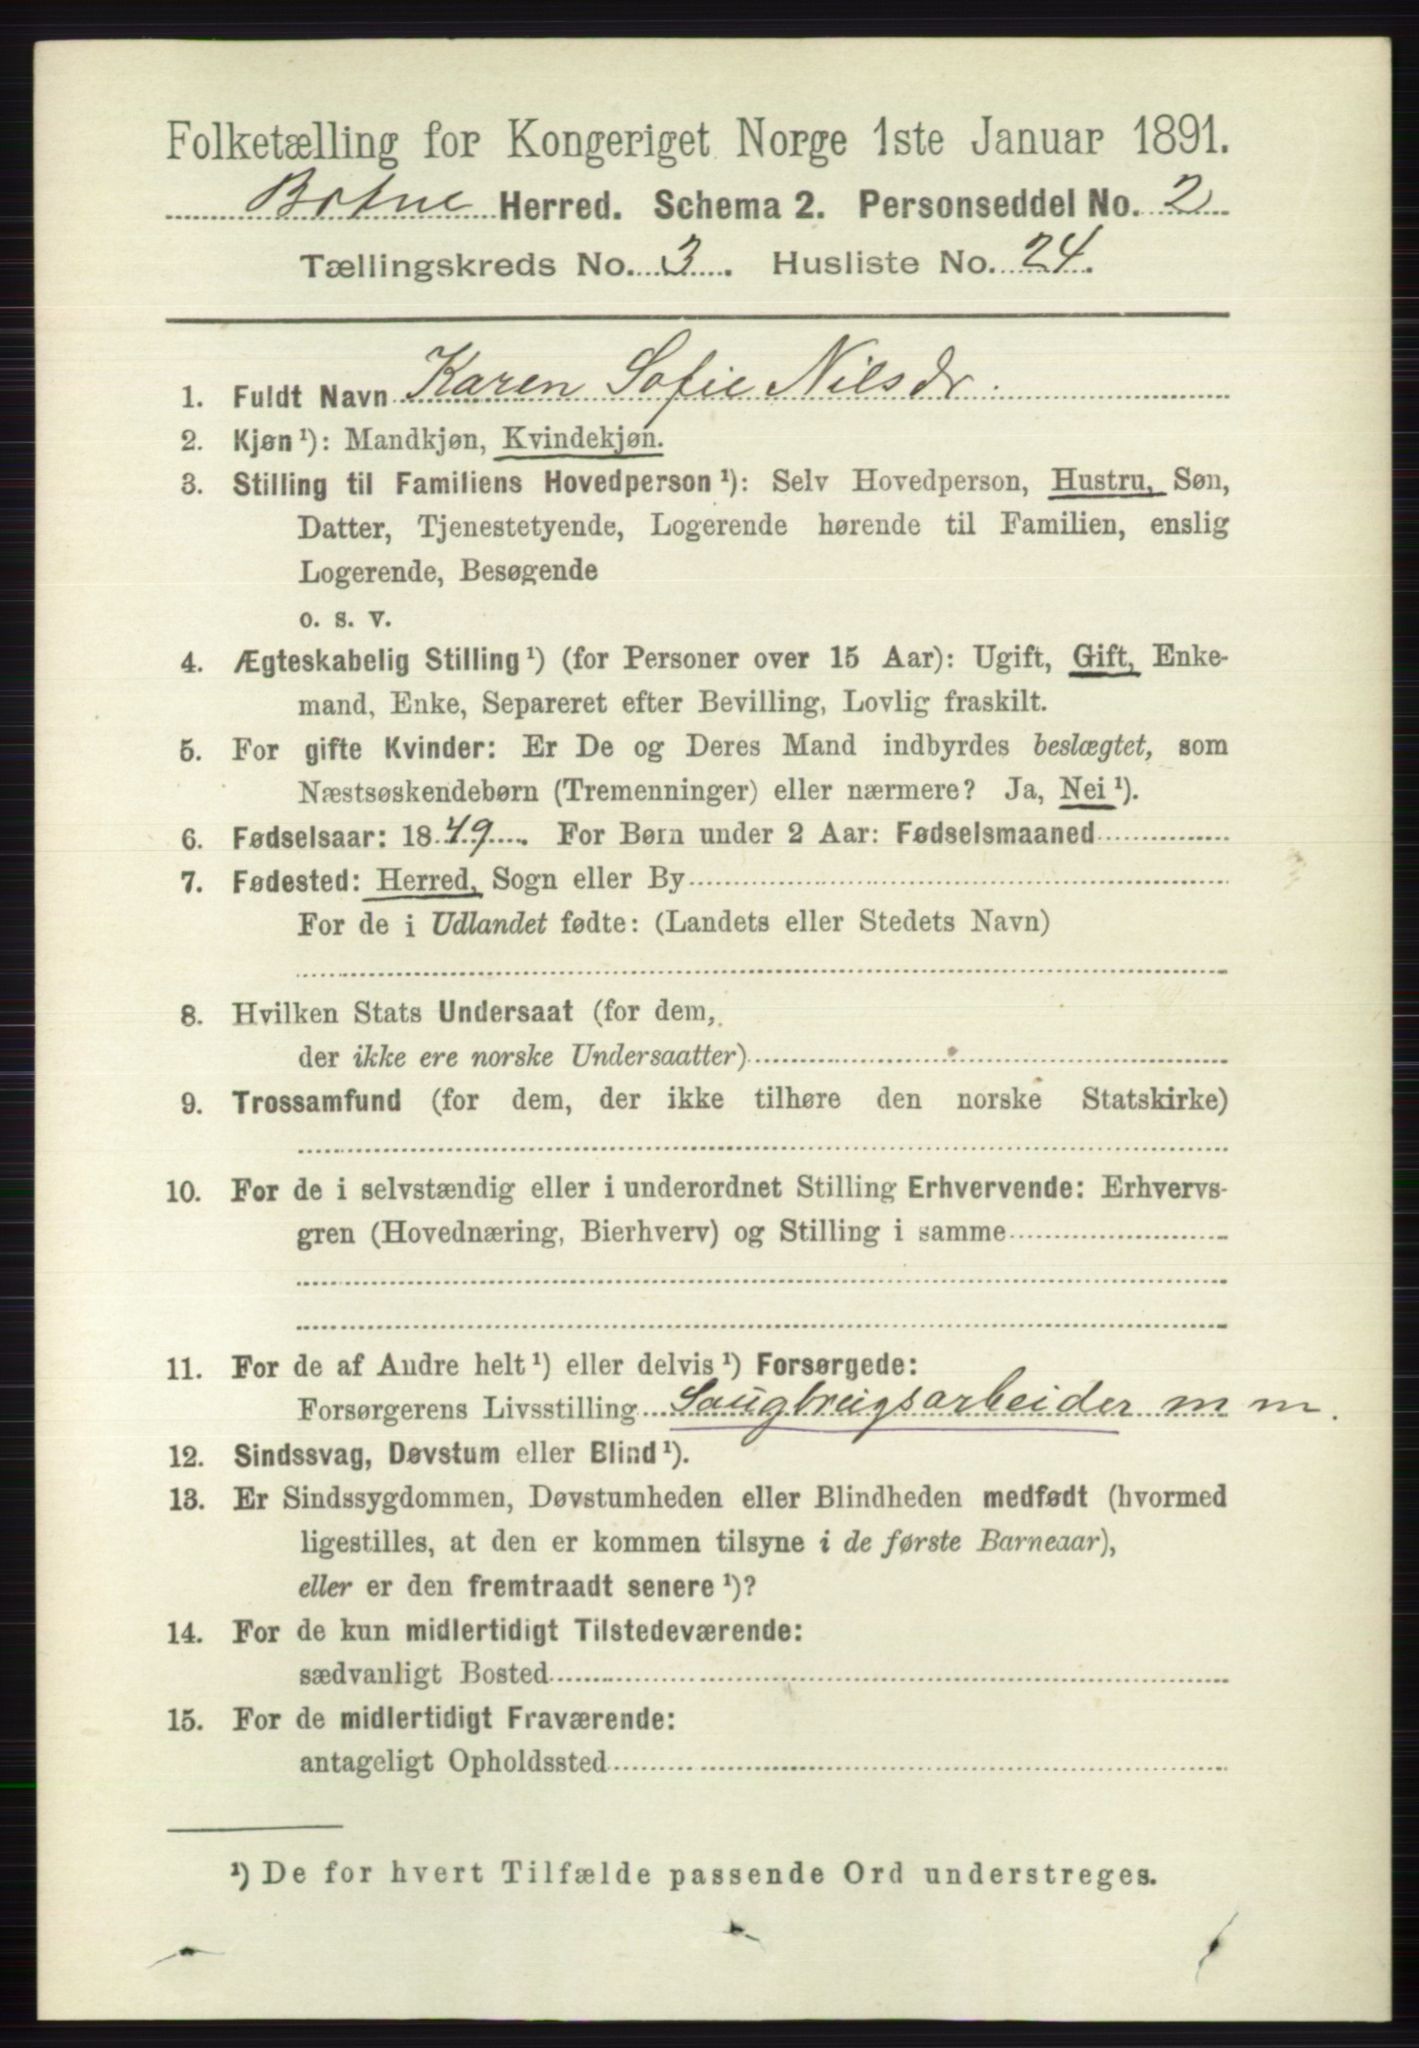 Folketælling for Kongeriget Norge 1ste Januar 1891.
Botne Herred. Schema 2. Personseddel No. 2
Tællingskreds No. 3. Husliste No. 24.
1. Fuldt Navn Karen Sofie Nilsdr.
2. Kjøn¹): Mandkjøn, Kvindekjøn.
3. Stilling til Familiens Hovedperson¹): Selv Hovedperson, Hustru, Søn,
Datter, Tjenestetyende, Logerende hørende til Familien, enslig
Logerende, Besøgende
o. s. v.
4. Ægteskabelig Stilling¹) (for Personer over 15 Aar): Ugift, Gift, Enke-
mand, Enke, Separeret efter Bevilling, Lovlig fraskilt.
5. For gifte Kvinder: Er De og Deres Mand indbyrdes beslægtet, som
Næstsøskendebørn (Tremenninger) eller nærmere? Ja, Nei¹).
6. Fødselsaar: 1849. For Børn under 2 Aar: Fødselsmaaned
7. Fødested: Herred, Sogn eller By
For de i Udlandet fødte: (Landets eller Stedets Navn)
8. Hvilken Stats Undersaat (for dem,
der ikke ere norske Undersaatter)
9. Trossamfund (for dem, der ikke tilhøre den norske Statskirke)
10. For de i selvstændig eller i underordnet Stilling Erhvervende: Erhvervs-
gren (Hovednæring, Bierhverv) og Stilling i samme
11. For de af Andre helt¹) eller delvis¹) Forsørgede:
Forsørgerens Livsstilling Saugbrugsarbeider m m.
12. Sindssvag, Døvstum eller Blind¹).
13. Er Sindssygdommen, Døvstumheden eller Blindheden medfødt (hvormed
ligestilles, at den er kommen tilsyne i de første Barneaar),
eller er den fremtraadt senere¹)?
14. For de kun midlertidigt Tilstedeværende:
sædvanligt Bosted
15. For de midlertidigt Fraværende:
antageligt Opholdssted
¹) De for hvert Tilfælde passende Ord understreges.